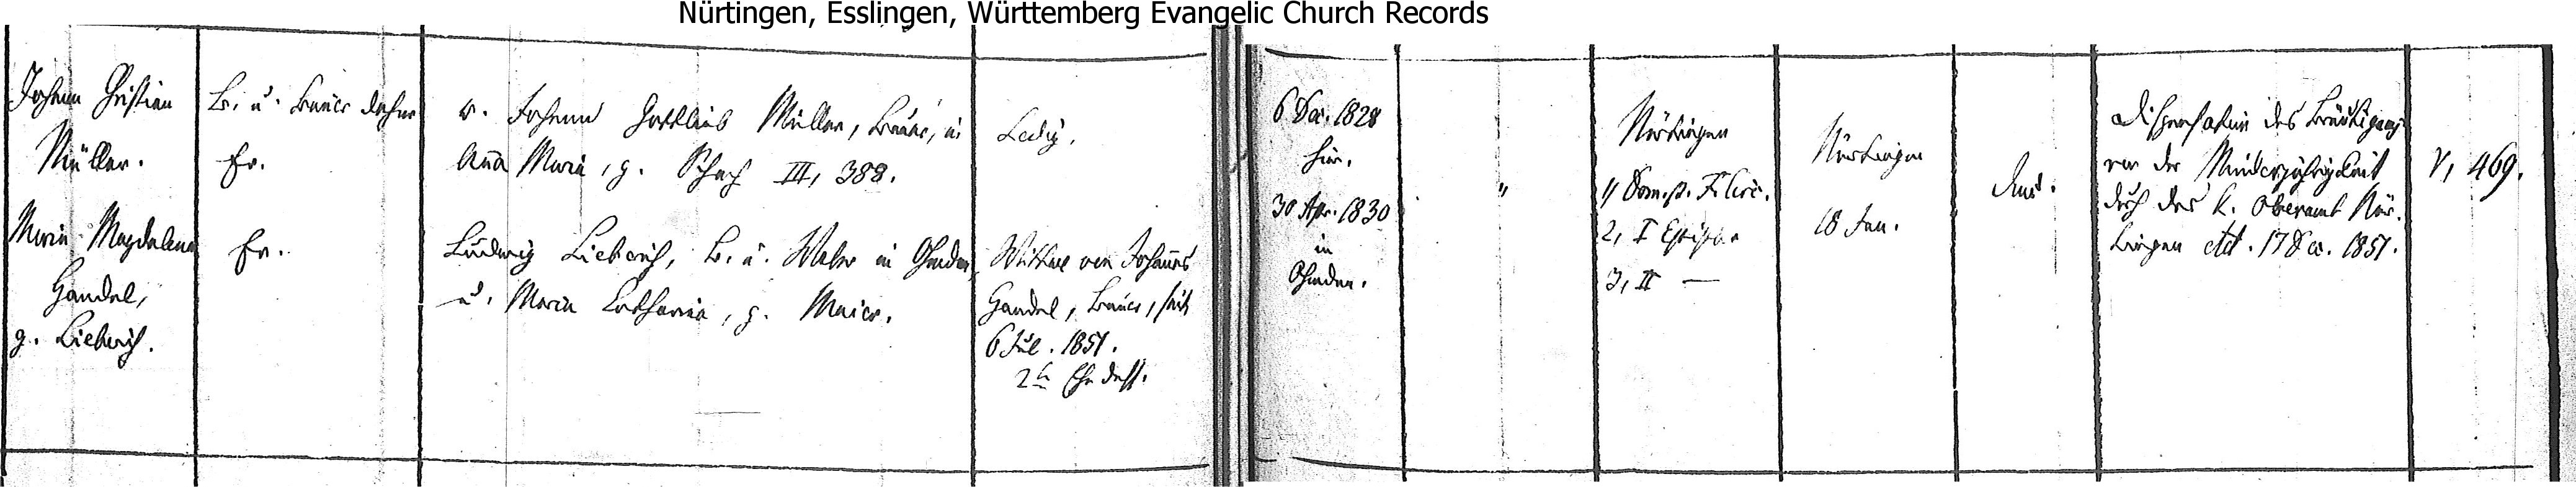 Nürtingen, Esslingen, Württemberg Evangelic Church Records
Johann Christian
Müller.
B. u. Bauer dahier
Ev.
v. Johann Gottlieb Müller, Bauer, u.
Anna Maria, g. Schach III, 388.
Ledig.
6 Dec. 1828
hier.
"
Nürtingen
1, Dom. p. F. Circ.
2, I Epiph.
3, II —
Nürtingen
18 Jan.
Dispensation des Bräutigams
von der Minderjährigkeit
durch das K. Oberamt Nür-
tingen dd. 17 Dec. 1851.
V, 469.
Maria Magdalena
Gandel,
g. Lieberich.
Ev.
Ludwig Lieberich, B. u. Weber in Ohmden,
u. Maria Catharina, g. Maier.
Wittwe von Johannes
Gandel, Bauer, seit
6 Jul. 1851.
2te Ehe dess.
30 Apr. 1830
in
Ohmden.